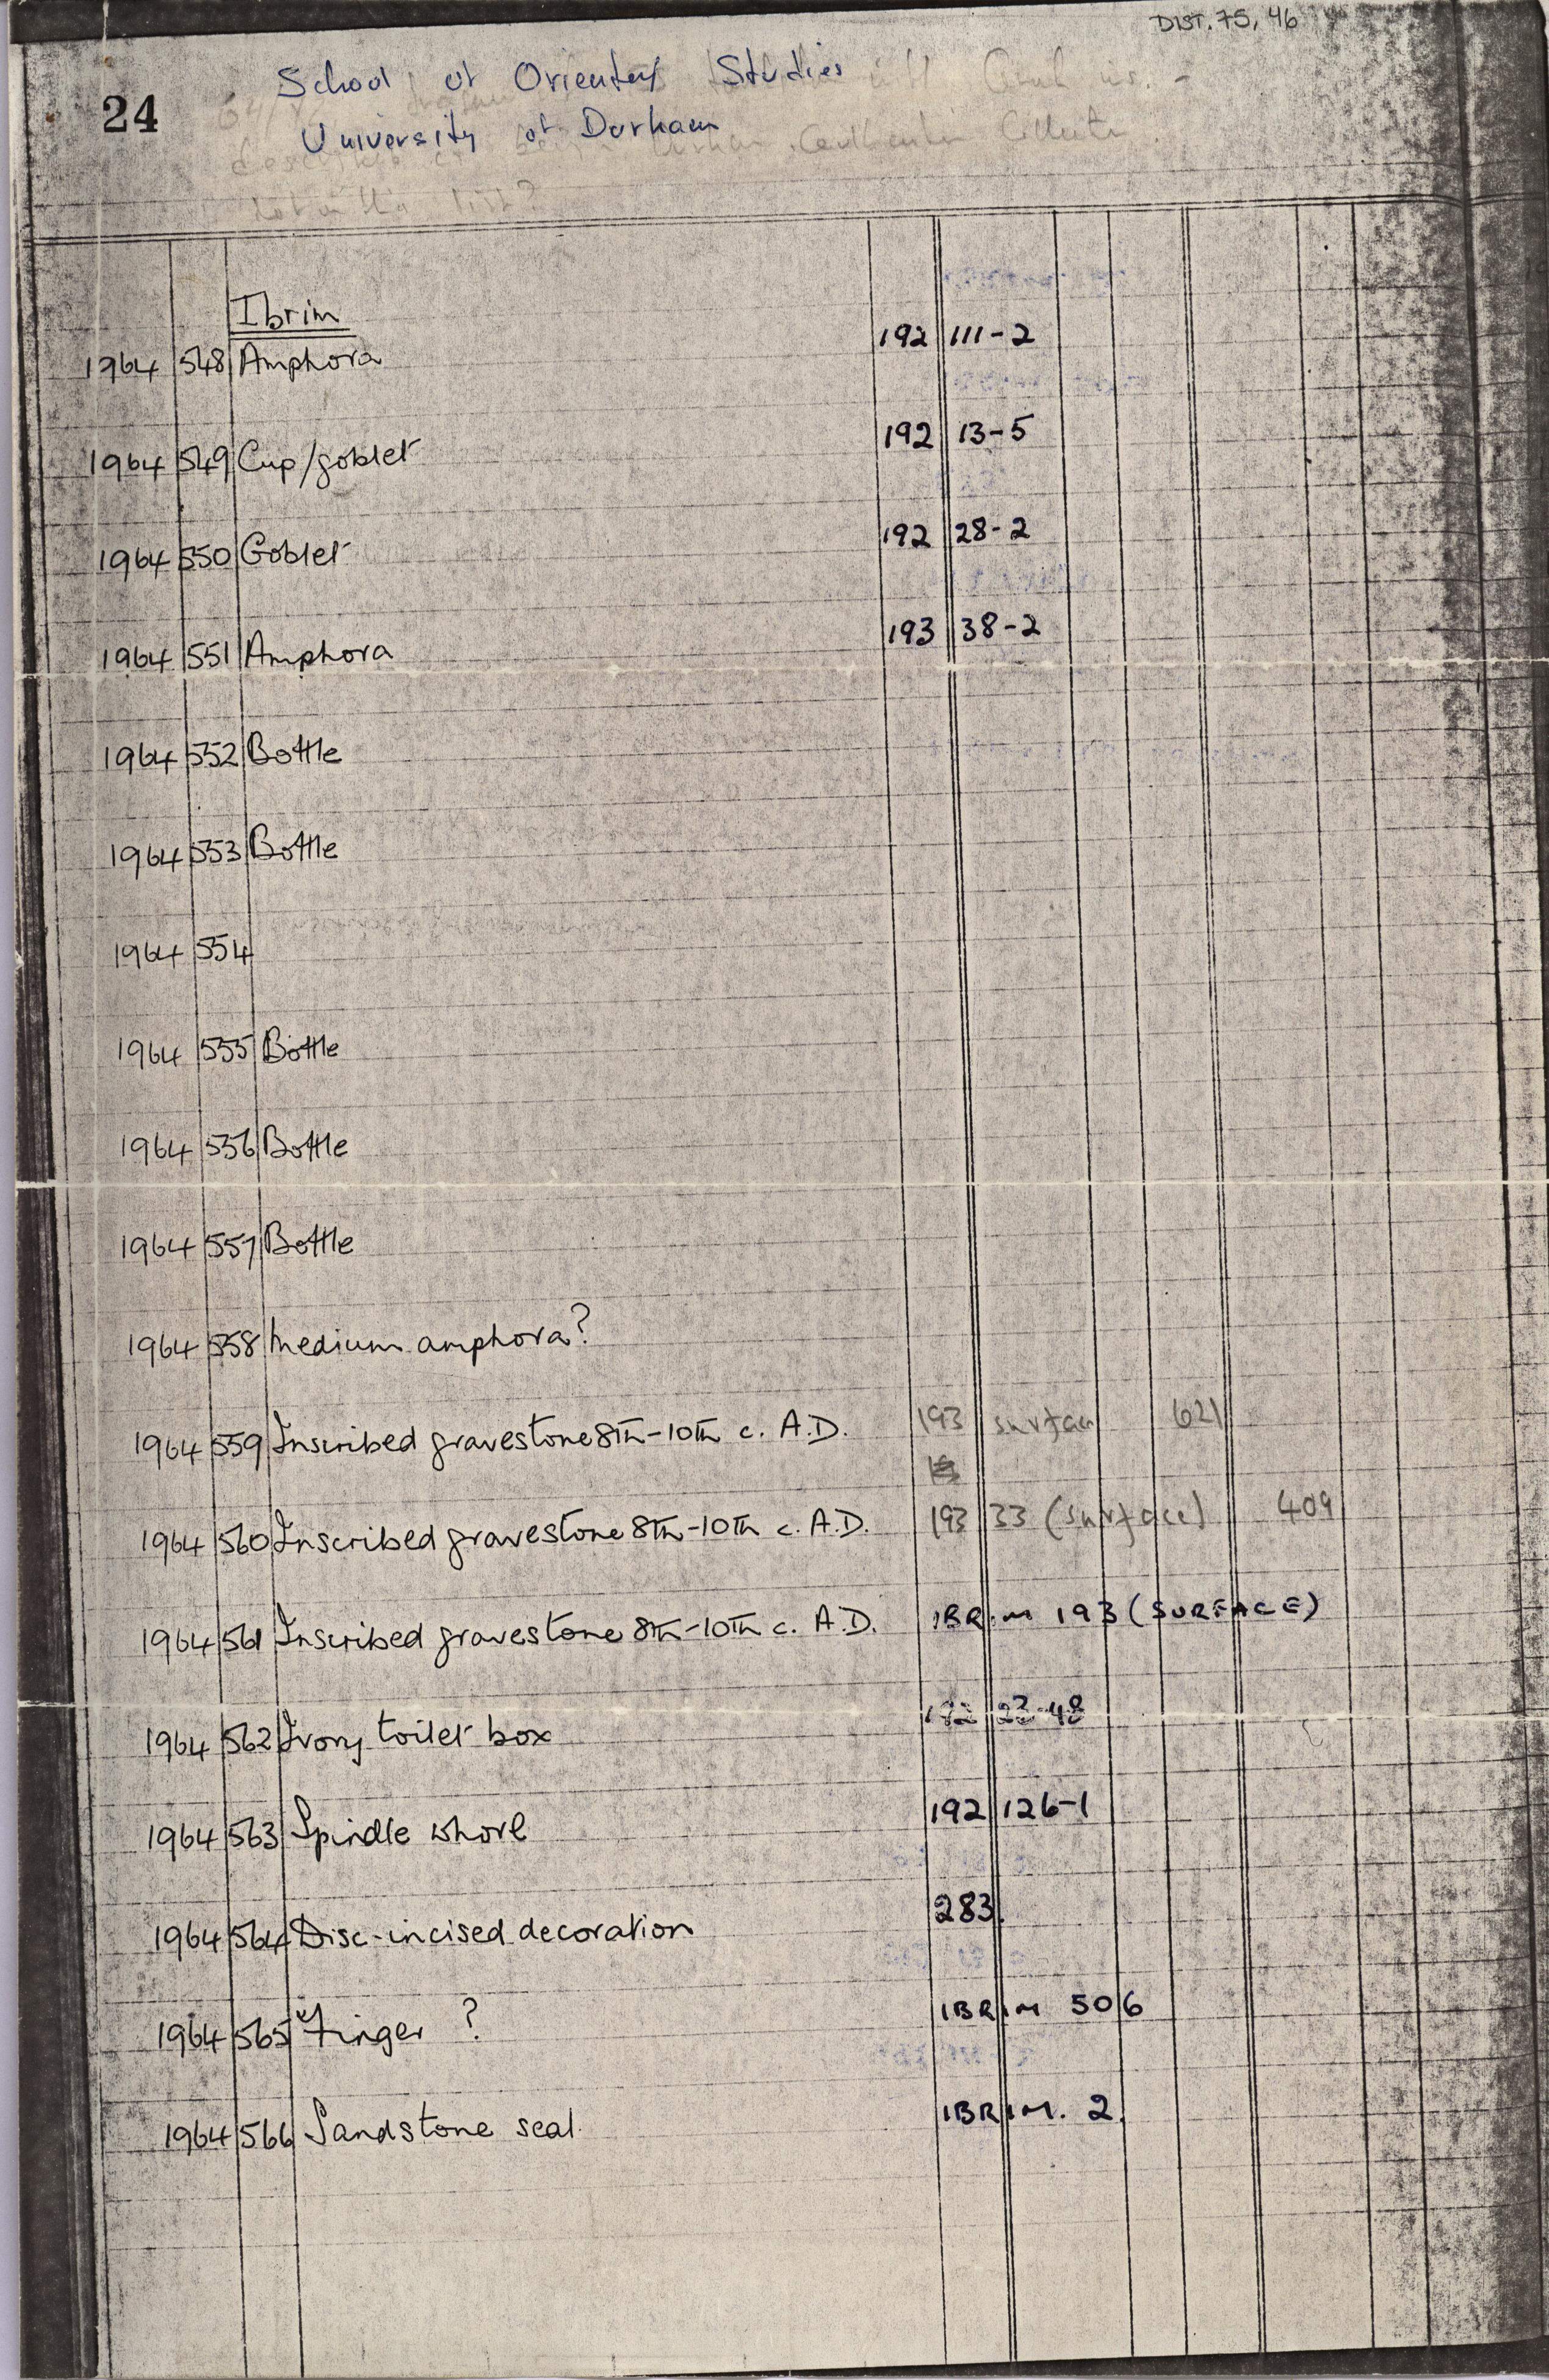 DIST. 75, 46
School of Oriental Studies
24
University of Durham
not in this list?
Ibrim
1964 548 Amphora 192 111-2
1964 549 Cup/goblet 192 13-5
1964 550 Goblet 192 28-2
1964 551 Amphora 193 38-2
1964 552 Bottle
1964 553 Bottle
1964 554
1964 555 Bottle
1964 556 Bottle
1964 557 Bottle
1964 558 Medium amphora?
1964 559 Inscribed gravestone 8th-10th c. A.D. 193 surface 621
1964 560 Inscribed gravestone 8th-10th c. A.D. 193 33 (surface) 409
1964 561 Inscribed gravestone 8th-10th c. A.D. IBRIM 193 (SURFACE)
1964 562 Ivory toilet box 192 23-48
1964 563 Spindle whorl 192 126-1
1964 564 Disc-incised decoration 283.
1964 565 Finger ? IBRIM 506
1964 566 Sandstone seal. IBRIM. 2.